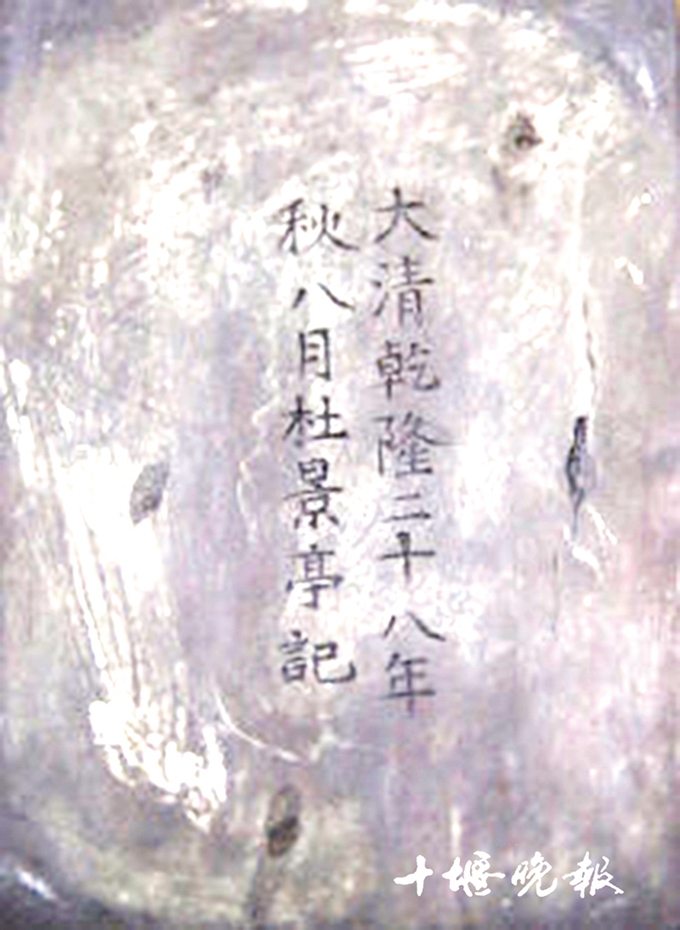 大清乾隆二十八年
秋八月杜景亭記
十堰晚報